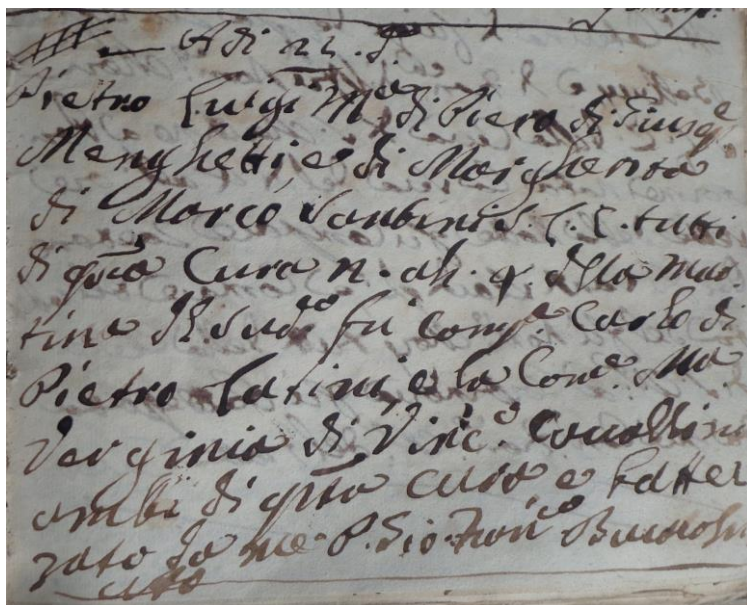 Adi 21. d.º
Pietro Luigi M.ª di Piero di Giusep.e
Menghetti e di Margherita
di Marco Santini S. L. C. tutti
di q̃ta Cura n. ah. 9 della mat
tina Il Sud.º fù Comp.e Carlo di
Pietro Latini, e la Com.e Ma
Verginia di Vinc.º Cavallini
ambi di q̃ta cura e battez
zato da me P. Gio. Fran.co